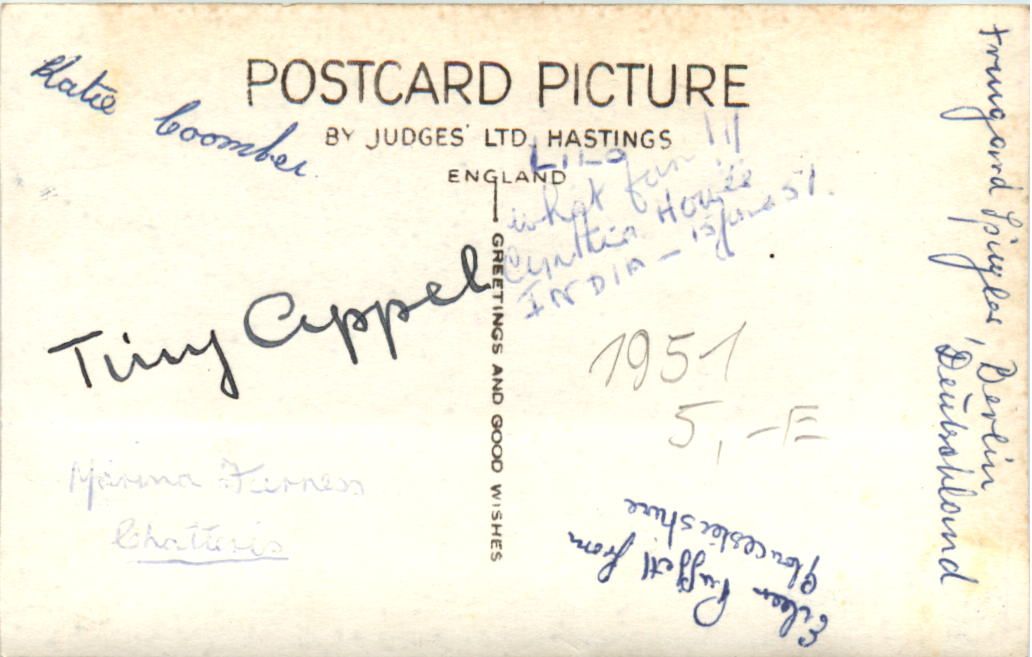 POSTCARD PICTURE
BY JUDGES' LTD, HASTINGS
ENGLAND
GREETINGS AND GOOD WISHES
Katie Coomber.
LILO
what fun !!!
Cynthia
INDIA - 15 June 51.
Tiny Appel
1951
5,-E
Marina Furness
Chatteris
Eileen from
Gloucestershire
Irmgard Spingler, Berlin
Deutschland